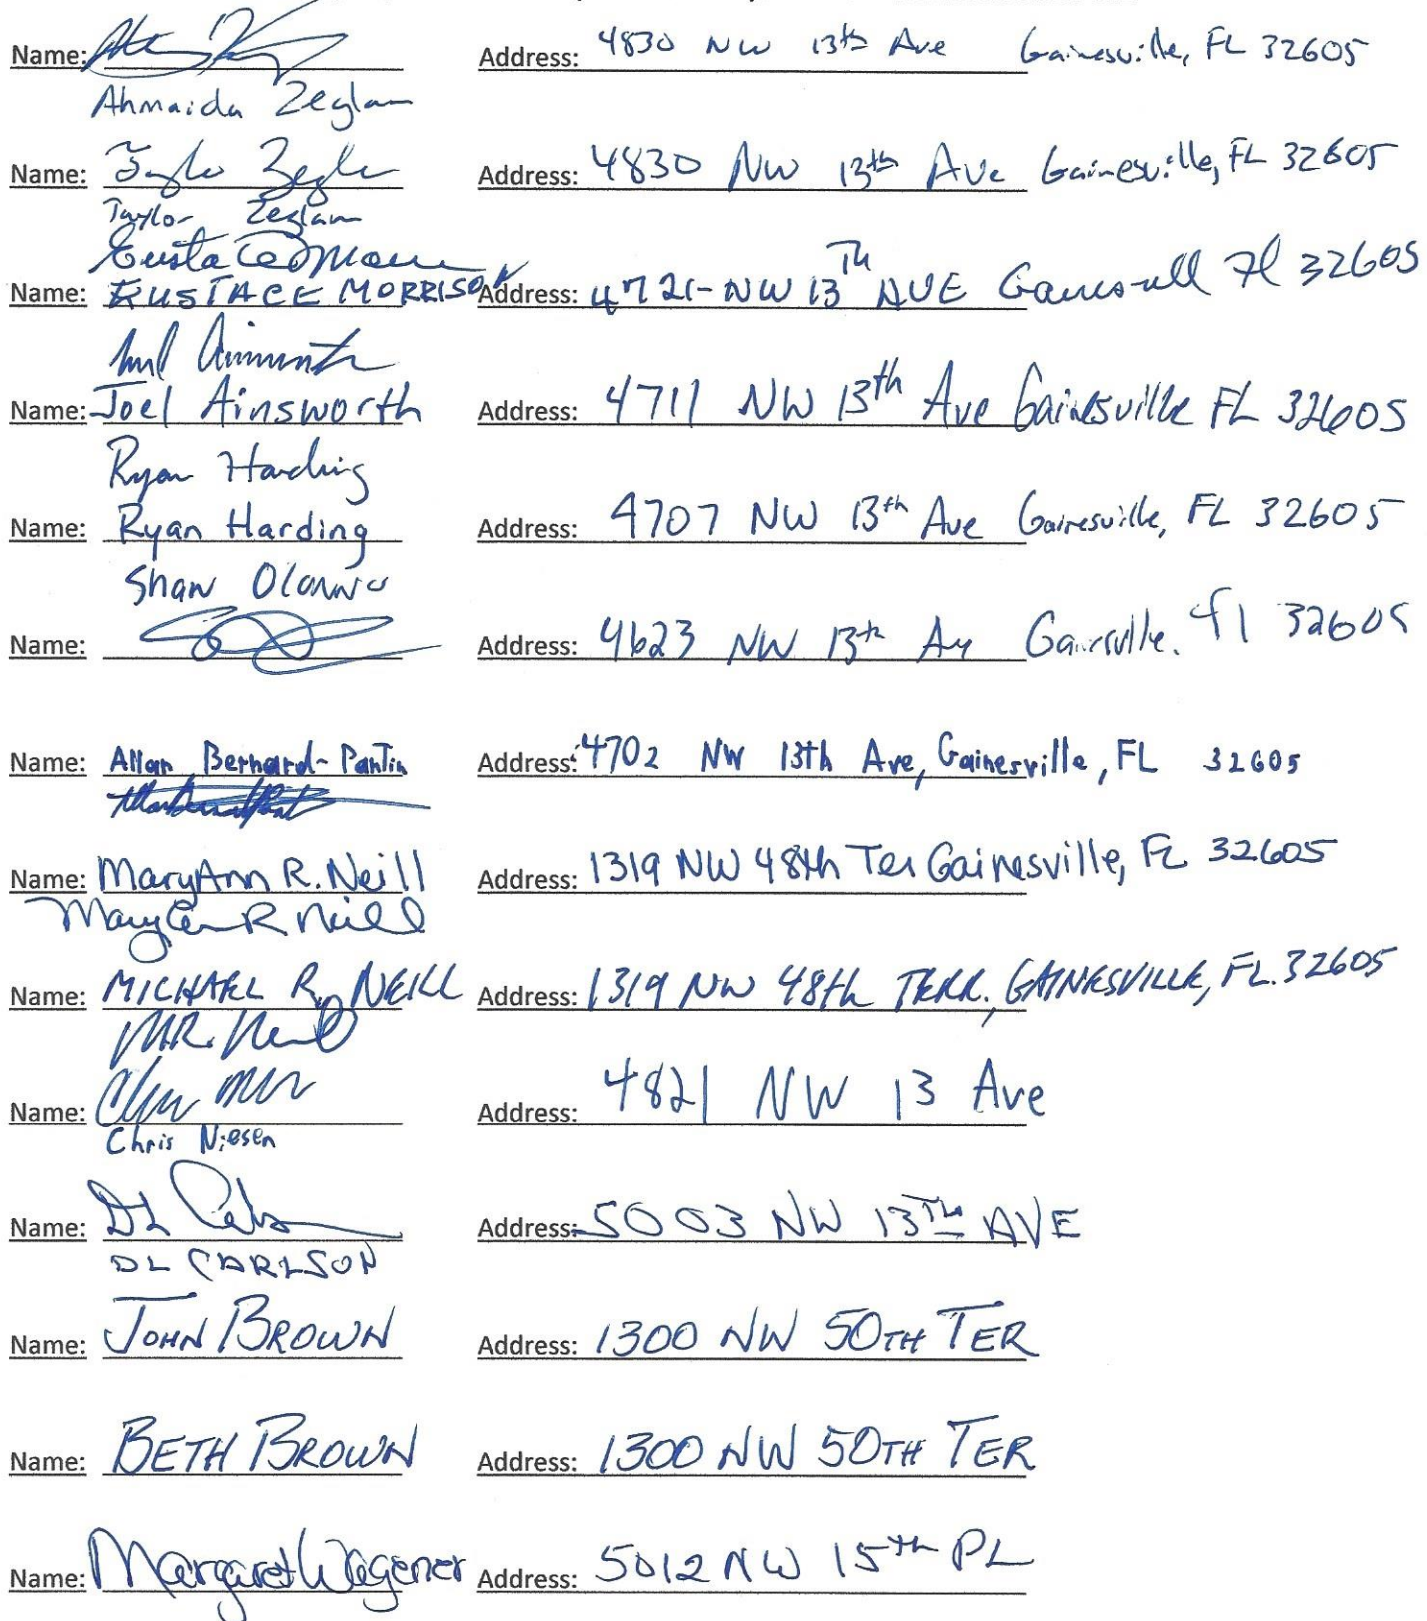 Name: Address: 4830 NW 13th Ave Gainesville, FL 32605
Ahmaida Zeglam
Name: Taylor Zeglam Address: 4830 NW 13th Ave Gainesville, FL 32605
Taylor Zeglam
Eustace Morrison
Name: EUSTACE MORRISON Address: 4721-NW 13TH AVE Fl 32605
Name: Joel Ainsworth Address: 4711 NW 13th Ave Gainesville FL 32605
Ryan Harding
Name: Ryan Harding Address: 4707 NW 13th Ave Gainesville, FL 32605
Shaw
Name: Address: 4623 NW 13th fl 32605
Name: Allan Bernard-Pantin Address: 4702 NW 13th Ave, Gainesville, FL 32605
Name: MaryAnn R. Neill Address: 1319 NW 48th Ter Gainesville, FL 32605
MaryAnn R Neill
Name: MICHAEL R. NEILL Address: 1319 NW 48th TERR. GAINESVILLE, FL. 32605
M.R. Neill
Name: Address: 4821 NW 13 Ave
Chris Niesen
Name: DL Address: 5003 NW 13TH AVE
DL CARLSON
Name: JOHN BROWN Address: 1300 NW 50TH TER
Name: BETH BROWN Address: 1300 NW 50TH TER
Name: Margaret Wagener Address: 5012 NW 15th PL